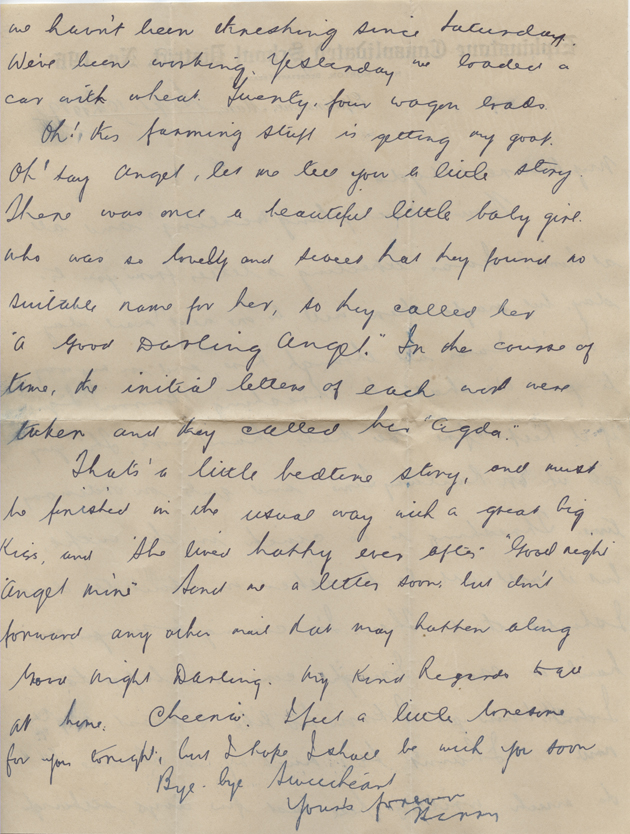 we havn't been threshing since Saturday.
We've been working. Yesterday we loaded a
car with wheat. Twenty-four wagon loads.
Oh! this farming stuff is getting my goat.
Oh! say Angel, let me tell you a little story.
There was once a beautiful little baby girl
who was so lovely and sweet that they found no
suitable name for her, so they called her
"A Good Darling Angel." In the course of
time, the initial letters of each word were
taken and they called her "Agda."
That's a little bedtime story, and must
be finished in the usual way with a great big
Kiss, and "she lived happy ever after" "Good night
Angel mine" Send me a letter soon, but don't
forward any other mail that may happen along
Good night Darling. My Kind Regards to all
at home. Cheerio. I feel a little lonesome
for you tonight, but I hope I shall be with you soon
Bye-bye Sweetheart
Yours forever